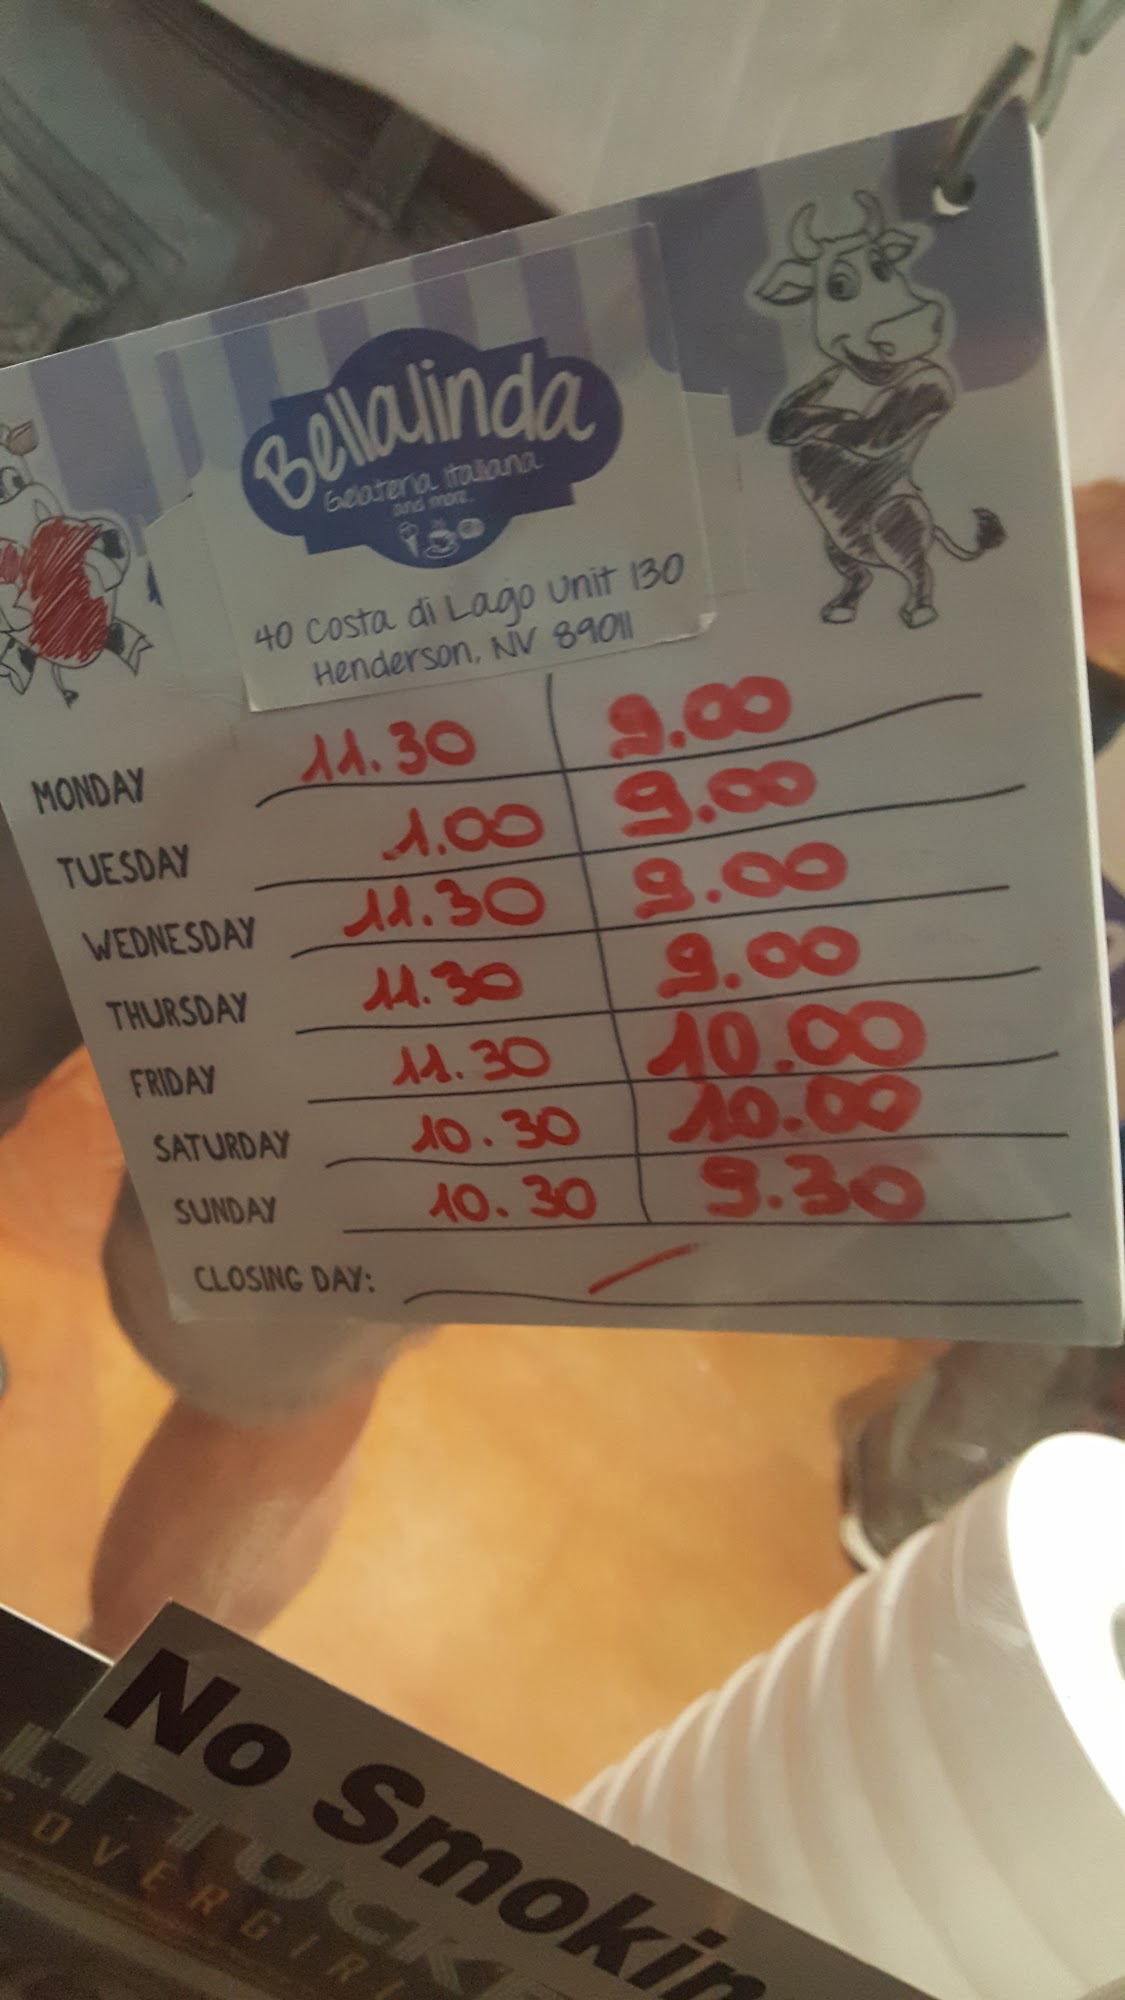 Bellalinda
Gelateria Italiana
and more.
40 Costa di Lago Unit 130
Henderson, NV 89011
MONDAY 11.30 9.00
TUESDAY 1.00 9.00
WEDNESDAY 11.30 9.00
THURSDAY 11.30 9.00
FRIDAY 11.30 10.00
SATURDAY 10.30 10.00
SUNDAY 10.30 9.30
CLOSING DAY: /
No Smokin
COVERGIRL